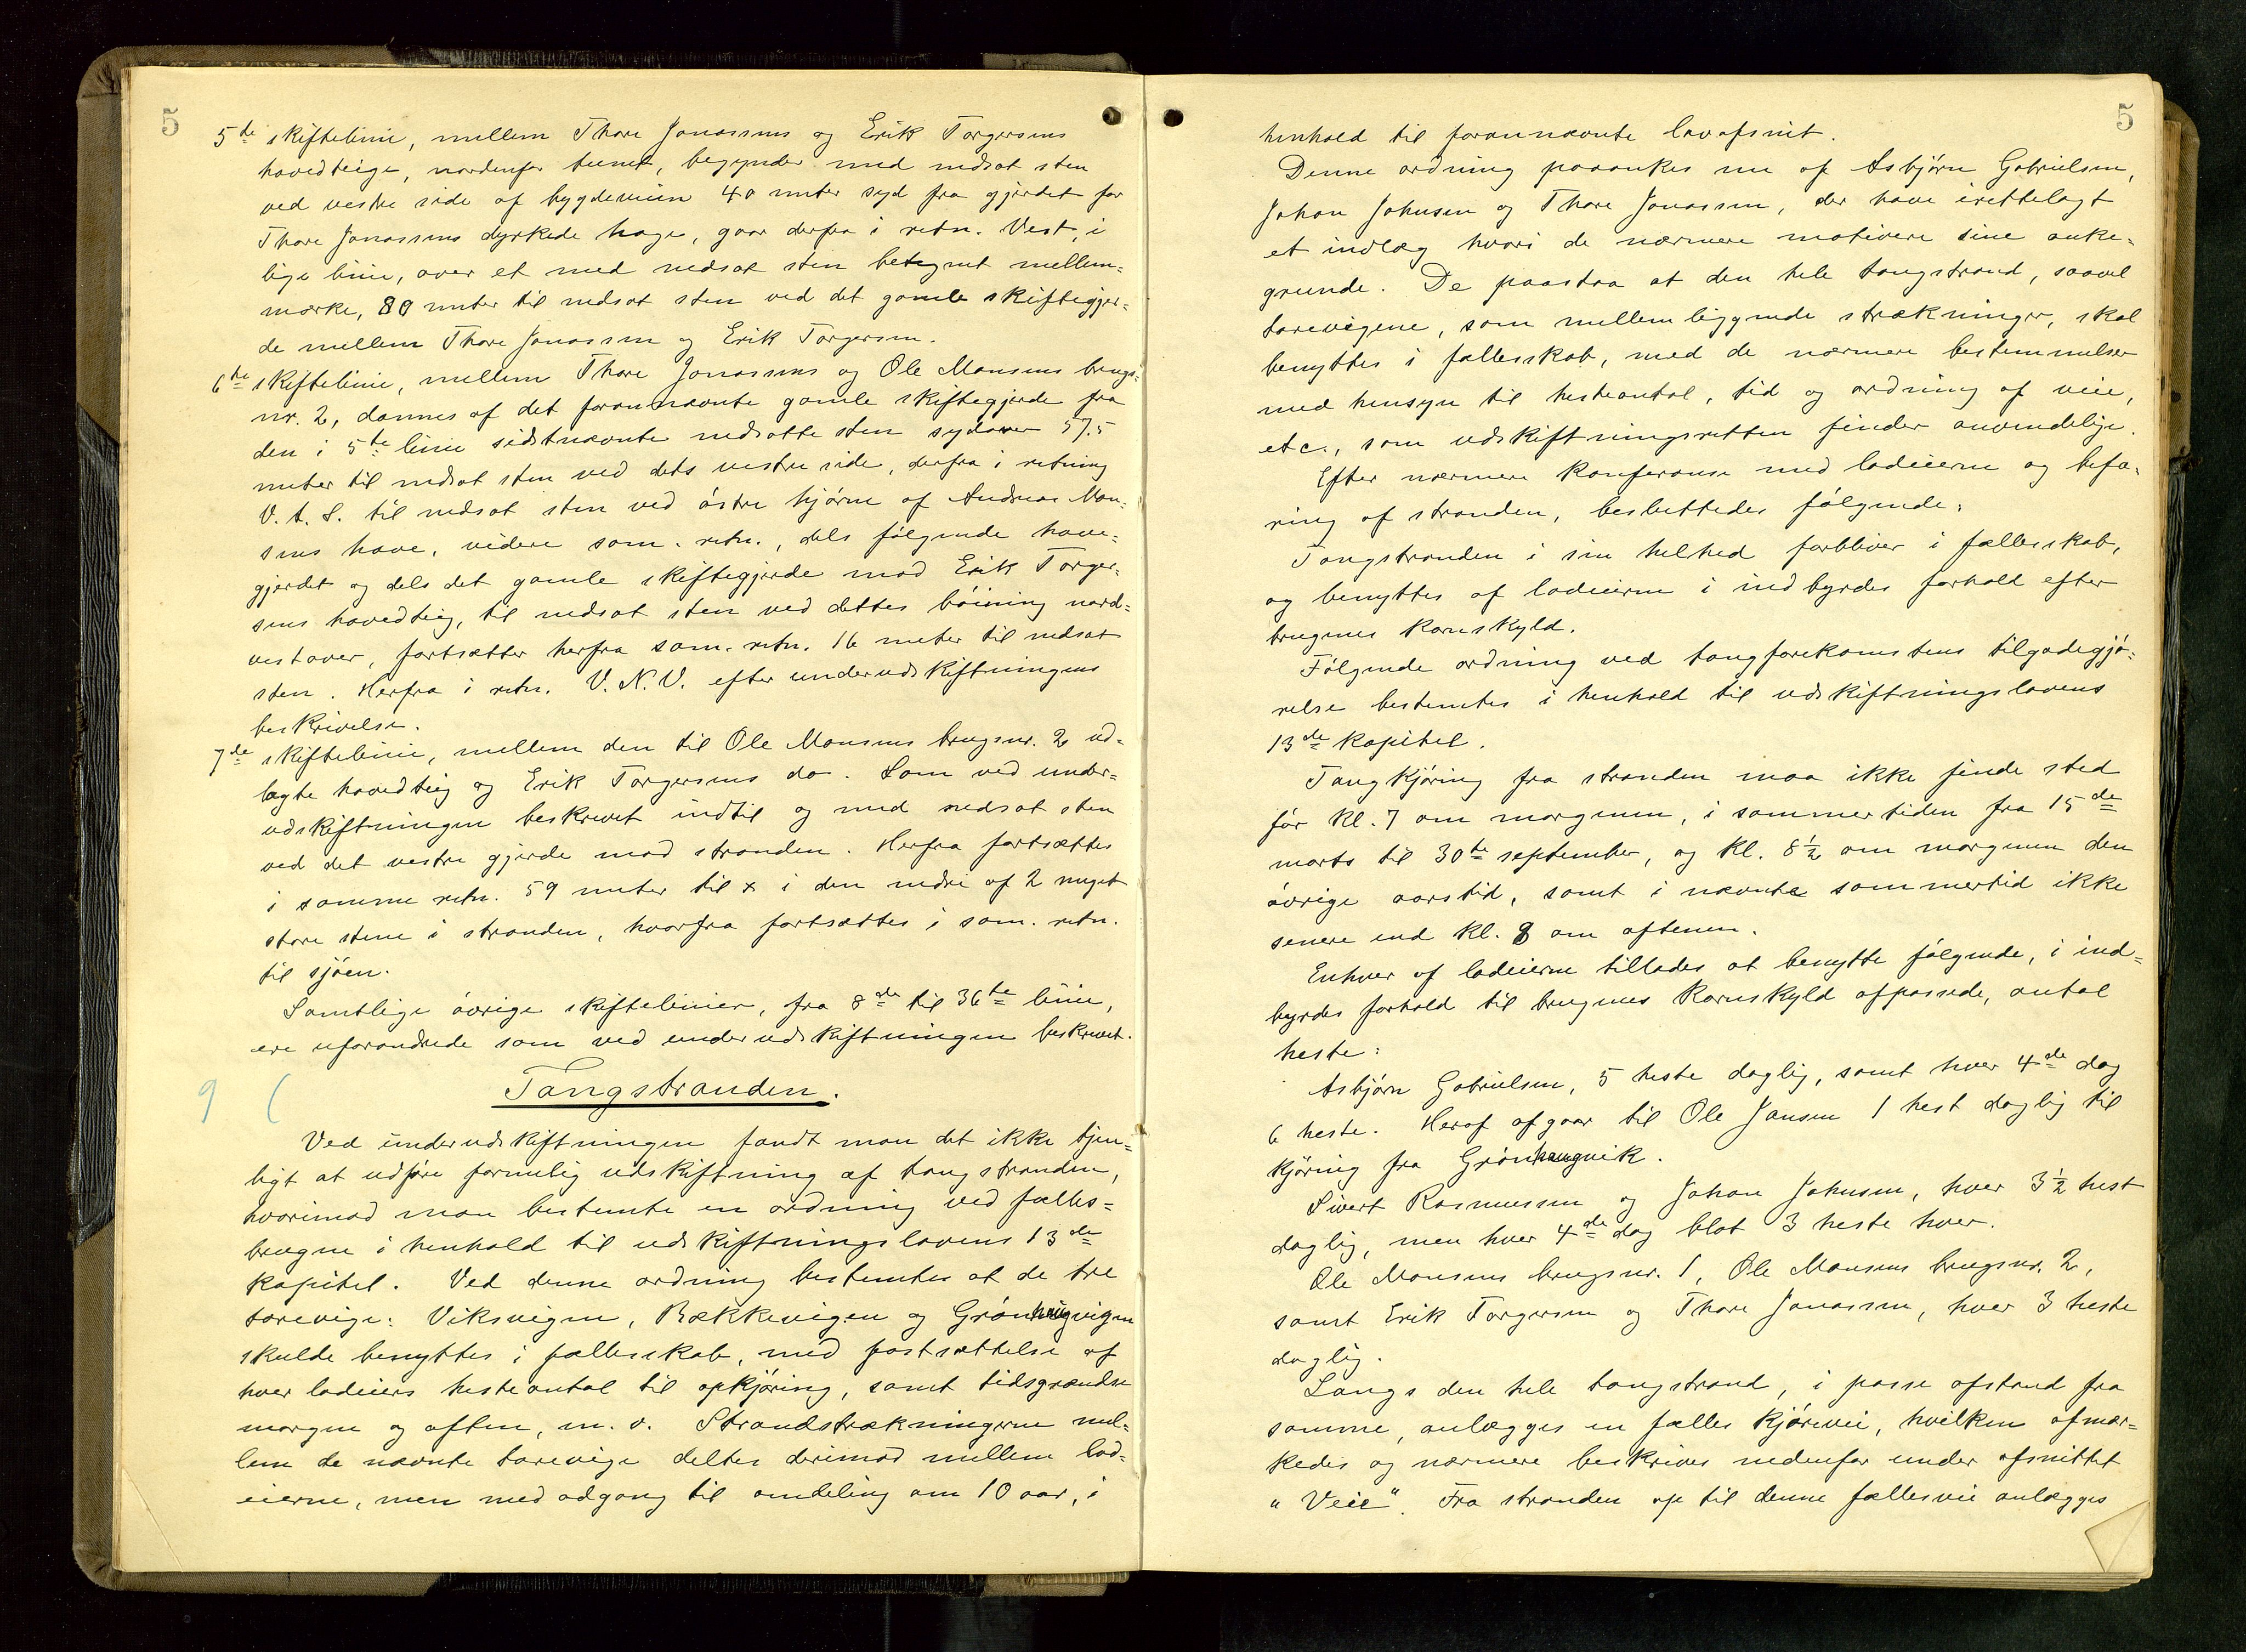 5
5de skiftelinie, mellem Thore Jonassens og Erik Torgersens
hovedteige, nordenfor tunet, begynder med nedsat sten
ved vestre side af bygdeveien 40 meter syd fra gjerdet for
Thore Jonassens dyrkede hage, gaar derfra i retn. Vest, i
lige linie, over et med nedsat sten betegnet mellem-
mærke, 80 meter til nedsat sten ved det gamle skiftegjer-
de mellem Thore Jonassen og Erik Torgersen.
6te skiftelinie, mellem Thore Jonassens og Ole Monsens brugs-
nr. 2, dannes af det forannævnte gamle skiftegjerde fra
den i 5te linie sidstnævnte nedsatte sten sydover 57.5
meter til nedsat sten ved dets vestre side, derfra i retning
V. t. S. til nedsat sten ved østre hjørne af Andreas Mon-
sens have, videre sam. retn., dels følgende have-
gjerdet og dels det gamle skiftegjerde mod Erik Torger-
sens hovedteig, til nedsat sten ved dettes bøining nord-
vestover, fortsætter herfra sam. retn. 16 meter til nedsat
sten. Herfra i retn. V. N. V. efter underudskiftningens
beskrivelse.
7de skiftelinie, mellem den til Ole Monsens brugsnr. 2 ud-
lagte hovedteig og Erik Torgersens do. Som ved under-
udskiftningen beskrevet indtil og med nedsat sten
ved det vestre gjerde mod stranden. Herfra fortsættes
i samme retn. 59 meter til x i den nedre af 2 meget
store stene i stranden, hvorfra fortsættes i sam. retn.
til sjøen.
Samtlige øvrige skiftelinier, fra 8de til 36te linie,
ere uforandrede som ved underudskiftningen beskrevet.
9 (
Tangstranden.
Ved underudskiftningen fandt man det ikke tjen-
ligt at udføre formelig udskiftning af tangstranden,
hvorimod man bestemte en ordning ved fælles-
brugen i henhold til udskiftningslovens 13de
kapitel. Ved denne ordning bestemtes at de tre
tarevige: Viksvigen, Bækkevigen og Grønhaugvigen
skulde benyttes i fællesskab, med fastsættelse af
hver lodeiers hesteantal til opkjøring, samt tidsgrændse
morgen og aften, m. v. Strandstrækningerne mel-
lem de nævnte tarevige deltes derimod mellem lod-
eierne, men med adgang til omdeling om 10 aar, i
5
henhold til forannævnte lovafsnit.
Denne ordning paaankes nu af Asbjørn Gabrielsen,
Johan Johnsen og Thore Jonassen, der have irettelagt
et indlæg hvori de nærmere motivere sine anke-
grunde. De paastaa at den hele tangstrand, saavel
tarevigene, som mellemliggende strækninger, skal
benyttes i fællesskab, med de nærmere bestemmelser
med hensyn til hesteantal, tid og ordning af veie,
etc., som udskiftningsretten finder anvendelige.
Efter nærmere konferanse med lodeierne og befa-
ring af stranden, besluttedes følgende:
Tangstranden i sin helhed forbliver i fællesskab,
og benyttes af lodeierne i indbyrdes forhold efter
brugenes kornskyld.
Følgende ordning ved tangforekomstens tilgodegjø-
relse bestemtes i henhold til udskiftningslovens
13de kapitel.
Tangkjøring fra stranden maa ikke finde sted
før kl. 7 om morgenen, i sommertiden fra 15de
marts til 30te september, og kl. 8½ om morgenen den
øvrige aarstid, samt i nævnte sommertid ikke
senere end kl. 8 om aftenen.
Enhver af lodeierne tillades at benytte følgende, i ind-
byrdes forhold til brugenes kornskyld afpassede, antal
heste:
Asbjørn Gabrielsen, 5 heste daglig, samt hver 4de dag
6 heste. Heraf afgaar til Ole Jansen 1 hest daglig til
kjøring fra Grønhaugvik.
Sivert Rasmussen og Johan Johnsen, hver 3½ hest
daglig, men hver 4de dag blot 3 heste hver.
Ole Monsens brugsnr. 1, Ole Monsens brugsnr. 2,
samt Erik Torgersen og Thore Jonassen, hver 3 heste
daglig.
Langs den hele tangstrand, i passe afstand fra
samme, anlægges en fælles kjørevei, hvilken afmær-
kedes og nærmere beskrives nedenfor under afsnittet
"Veie". Fra stranden op til denne fællesvei anlægges